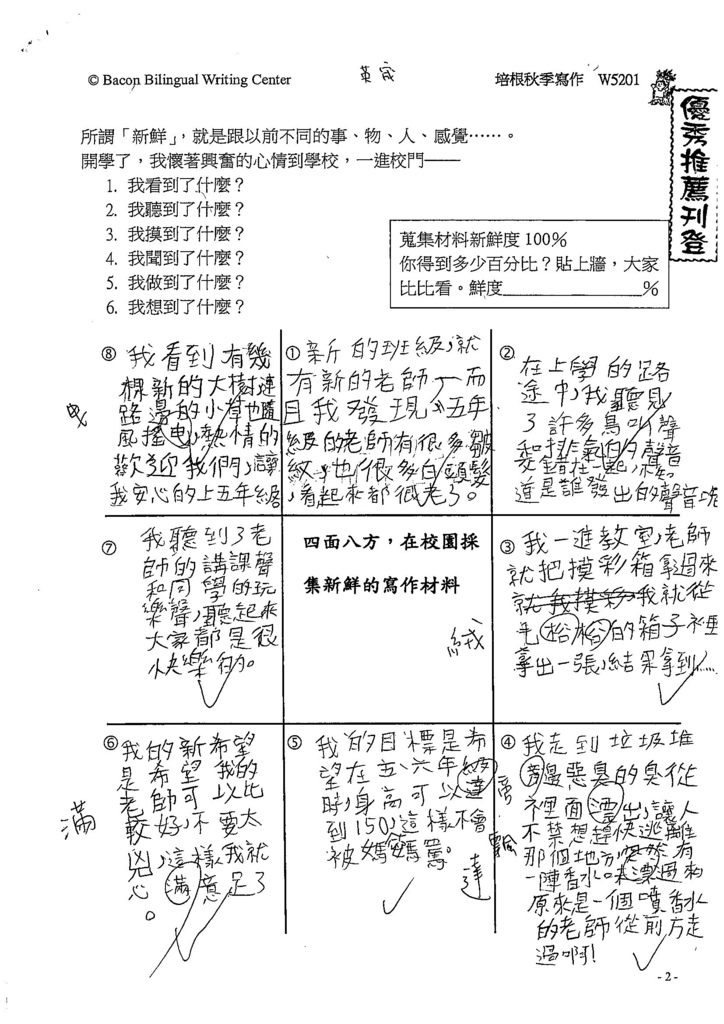 © Bacon Bilingual Writing Center
培根秋季寫作 W5201
優秀推薦刊登
所謂「新鮮」，就是跟以前不同的事、物、人、感覺……。
開學了，我懷著興奮的心情到學校，一進校門──
1. 我看到了什麼？
2. 我聽到了什麼？
3. 我摸到了什麼？
4. 我聞到了什麼？
5. 我做到了什麼？
6. 我想到了什麼？
蒐集材料新鮮度 100%
你得到多少百分比？貼上牆，大家
比比看。鮮度__________%
⑧ 我看到有幾
棵新的大樹連
路邊的小草也隨
風播曳，熱情的
歡迎我們，讓
我安心的上五年級
曳
① 新的班級，就
有新的老師，而
且我發現，五年
級的老師有很多皺
紋，也很多白頭髮
，看起來都很老了。
② 在上學的路
途中，我聽見
了許多鳥叫聲
和排氣的聲音
交錯在一起，不知
道是誰發出的聲音呢
⑦ 我聽到了老
師的講課聲
和同學的玩
樂聲，聽起來
大家都是很
快樂的。
四面八方，在校園採
集新鮮的寫作材料
絨
③ 我一進教室，老師
就把摸彩箱拿過來
就我摸彩我就從
毛的箱子裡
拿出一張，結果拿到……
⑥ 我的新希望
是希望我的
老師可以比
較好，不要太
凶，這樣我就
心滿意足了
。
滿
⑤ 我的目標是希
望在五、六年級
時，身高可以達
到150，這樣不會
被媽媽罵。
達
④ 我走到垃圾堆
旁邊惡臭的臭從
裡面漂出，讓人
不禁想趕快逃離
那個地方。忽然有
一陣香水味漂過來
原來是一個噴香水
的老師從前方走
過啊！
旁
飄
- 2 -